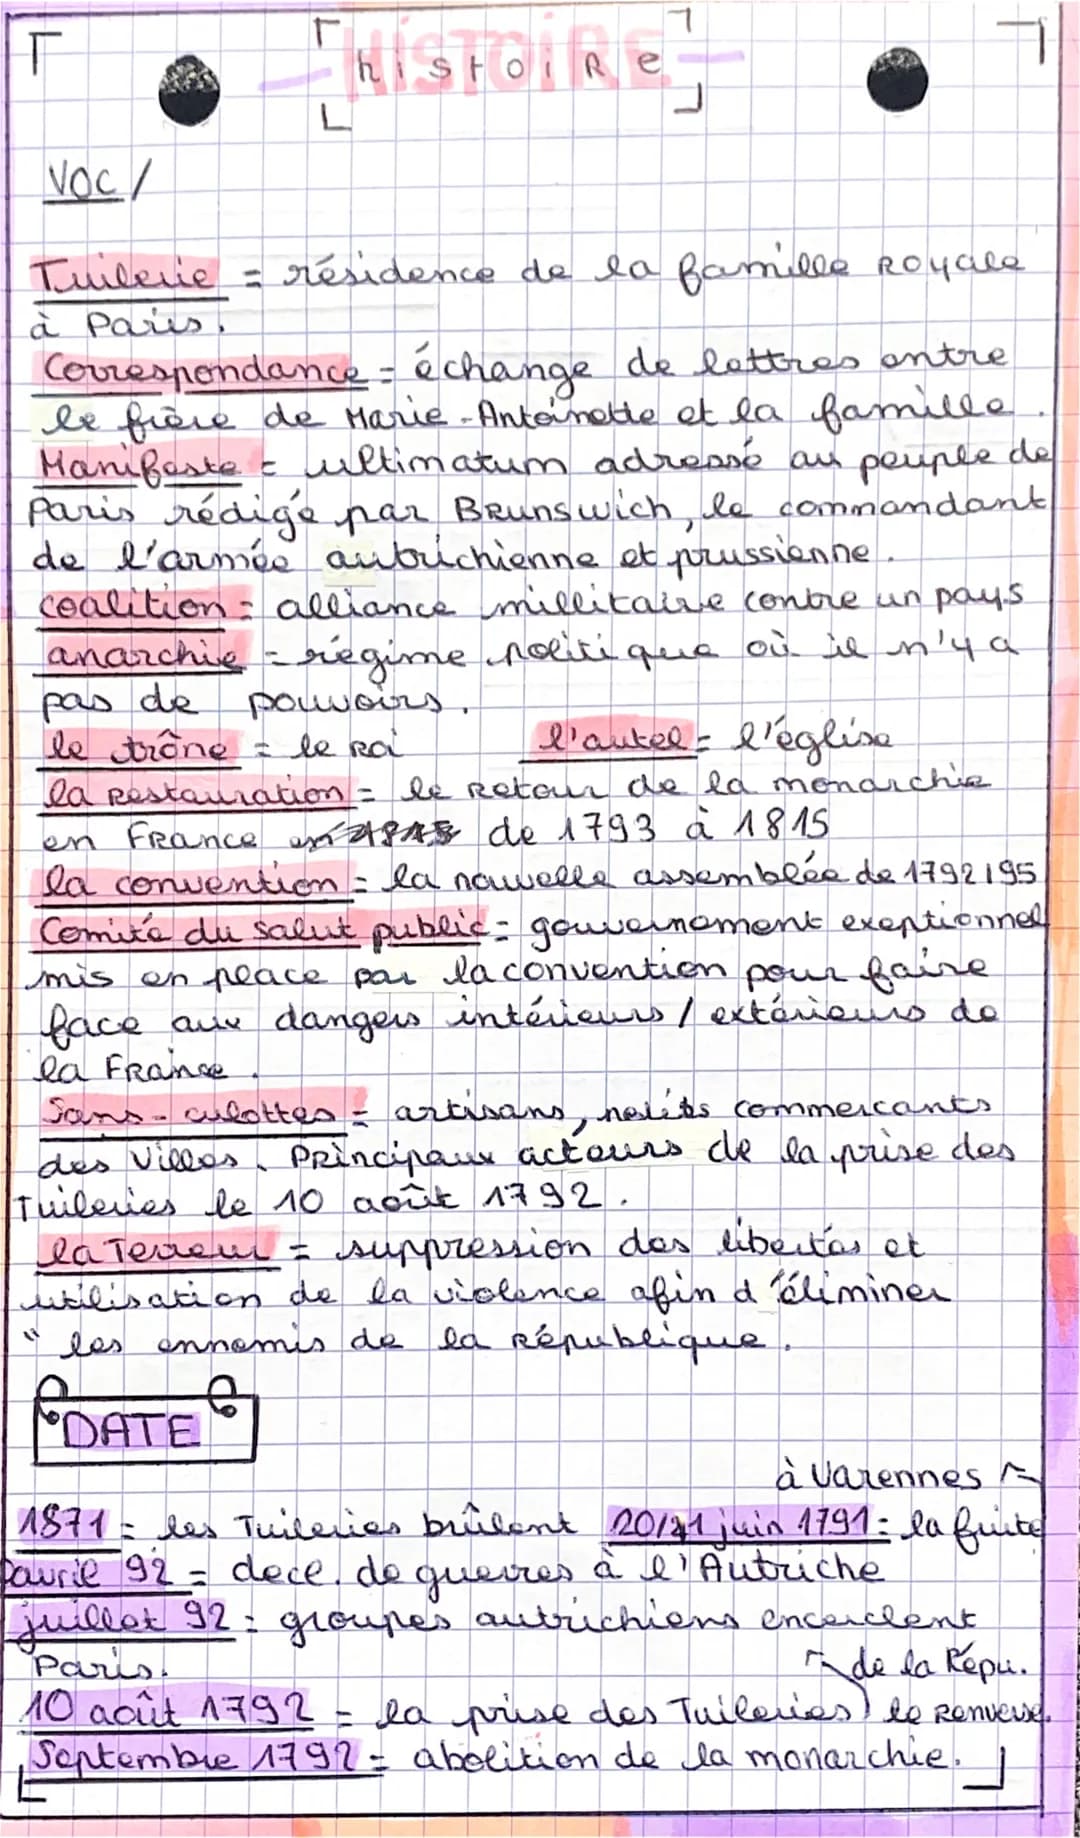 HiSTOiRE
histoiRe
VOC /
Tuilerie = résidence de la famille Royale
à Paris.
Correspondance = échange de lettres entre
le frère de Marie-Antoinette et la famille.
Manifeste = ultimatum adressé au peuple de
Paris rédigé par BRunswich, le commandant
de l'armée autrichienne et prussienne.
coalition = alliance millitaire contre un pays
anarchie = régime politique où il n'y a
pas de pouvoirs.
le trône = le Roi l'autel = l'église
la Restauration = le Retour de la monarchie
en FRance de 1793 à 1815
la convention = la nouvelle assemblée de 1792/95
Comité du salut public = gouvernement exeptionnel
mis en place par la convention pour faire
face aux dangers intérieurs / extérieurs de
la FRance.
Sans-culottes = artisans, petits commercants
des Villes. PRincipaux acteurs de la prise des
Tuileries le 10 août 1792.
la Terreur = suppression des libertés et
utilisation de la violence afin d'éliminer
" les ennemis de la République.
DATE
à Varennes
1871 = les Tuileries brûlent 20/21 juin 1791 = la fuite
avril 92 = dece. de guerres à l'Autriche
juillet 92 = groupes autrichiens encerclent
Paris.
de la Répu.
10 août 1792 = la prise des Tuileries) le Renverse.
Septembre 1792 = abolition de la monarchie.